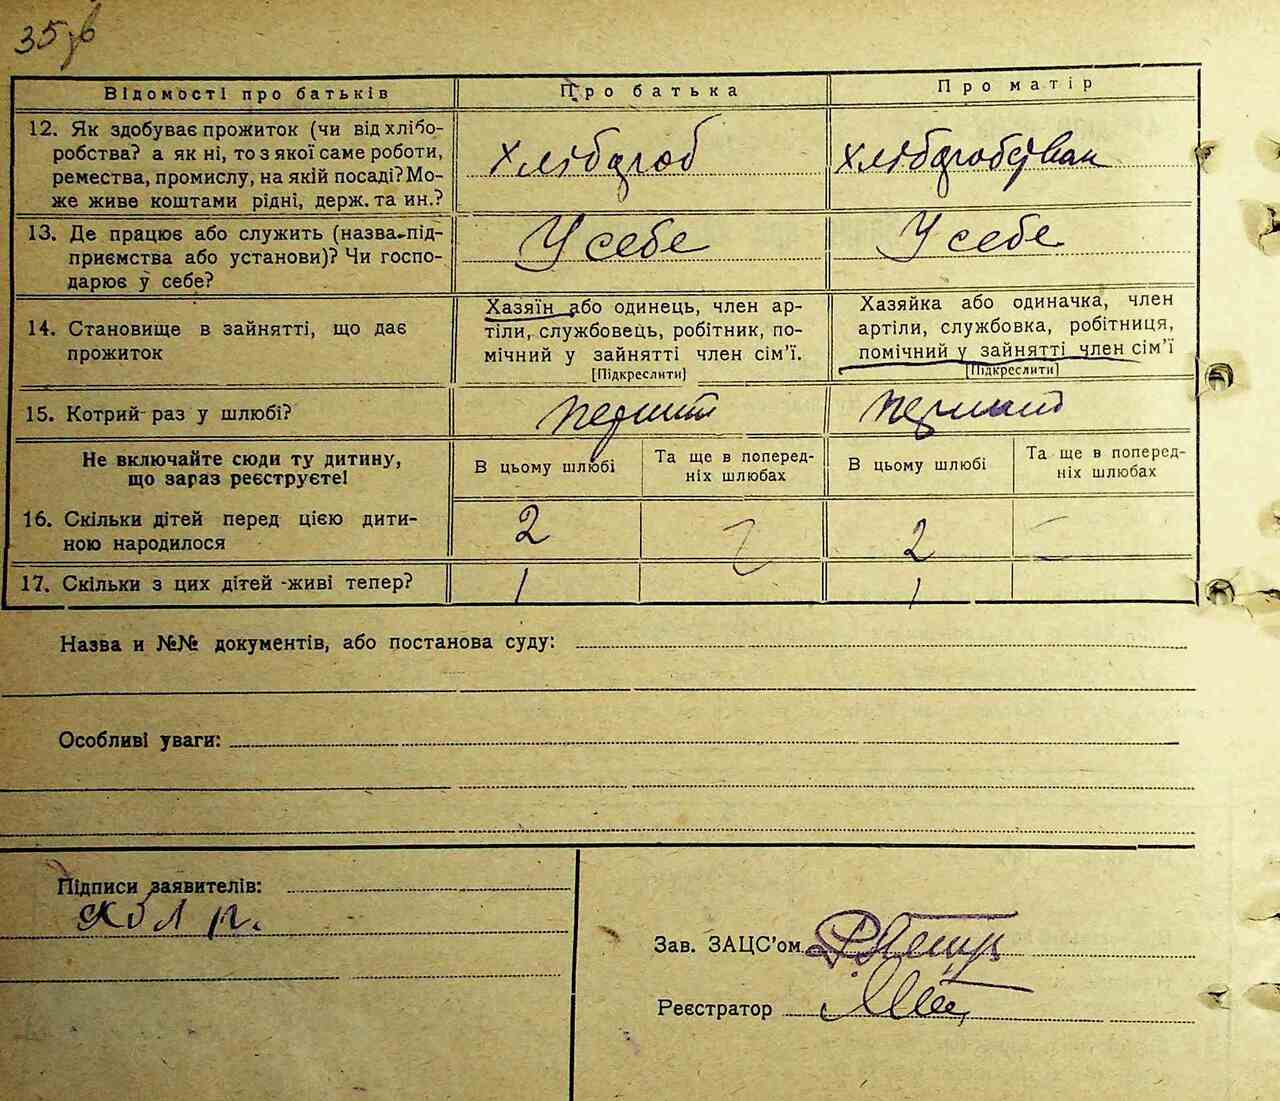 35 зв
Відомості про батьків Про батька Про матір
12. Як здобуває прожиток (чи від хлібо-
робства? а як ні, то з якої саме роботи,
ремества, промислу, на якій посаді? Мо-
же живе коштами рідні, держ. та ин.?
Хлібороб
13. Де працює або служить (назва під-
приємства або установи)? Чи госпо-
дарює у себе?
У себе У себе
14. Становище в зайнятті, що дає
прожиток
Хазяїн або одинець, член ар-
тілі, службовець, робітник, по-
мічний у зайнятті член сім'ї.
[Підкреслити]
Хазяйка або одиначка, член
артілі, службовка, робітниця,
помічний у зайнятті член сім'ї
[Підкреслити]
15. Котрий раз у шлюбі?
Не включайте сюди ту дитину,
що зараз реєструєте!
В цьому шлюбі
Та ще в поперед-
ніх шлюбах
В цьому шлюбі
Та ще в поперед-
ніх шлюбах
16. Скільки дітей перед цією дити-
ною народилося
2 2 —
17. Скільки з цих дітей живі тепер?
1 1
Назва и №№ документів, або постанова суду:
Особливі уваги:
Підписи заявителів:
Зав. ЗАЦС'ом
Реєстратор